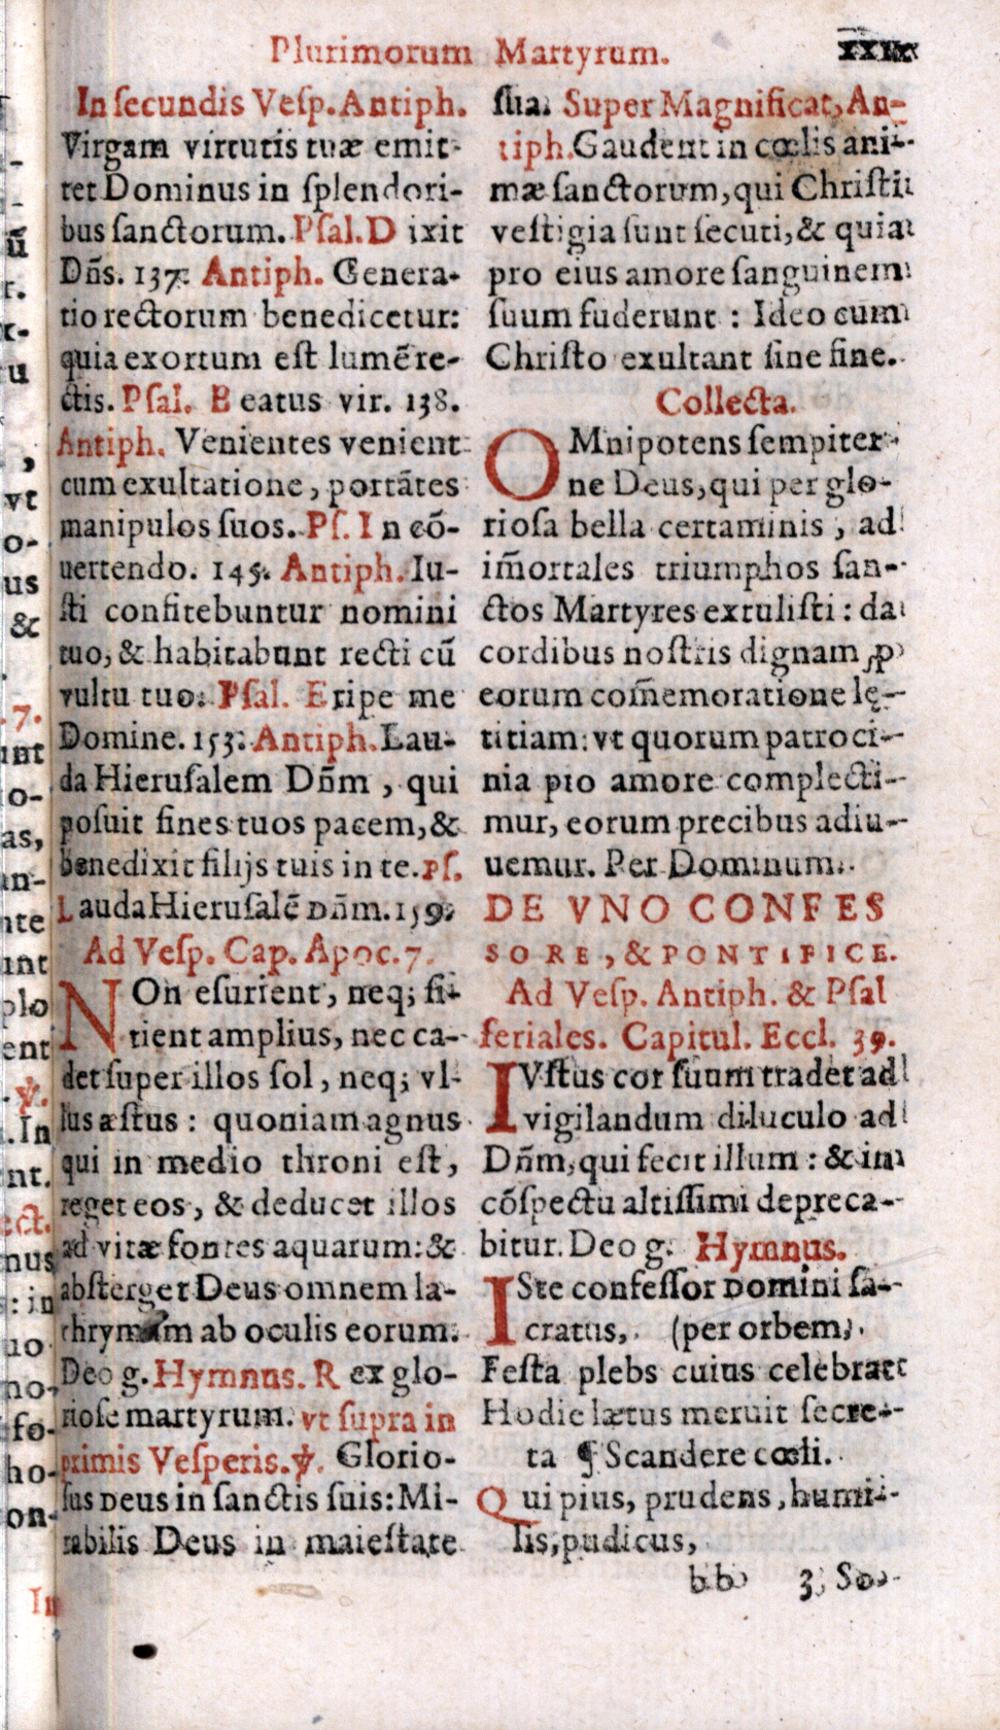 Plurimorum Martyrum.
In ſecundis Veſp. Antiph.
Virgam virtutis tuæ emit-
tet Dominus in ſplendori-
bus ſanctorum. Pſal. D ixit
Dn̄s. 137. Antiph. Genera-
tio rectorum benedicetur:
quia exortum eſt lumē re-
ctis. Pſal. B eatus vir. 138.
Antiph. Venientes venient
cum exultatione, portātes
manipulos ſuos. Pſ. I n cō-
uertendo. 145. Antiph. Iu-
ſti confitebuntur nomini
tuo, & habitabunt recti cū
vultu tuo. Pſal. Eripe me
Domine. 153. Antiph. Lau-
da Hieruſalem Dn̄m, qui
poſuit fines tuos pacem, &
benedixit filijs tuis in te. Pſ.
L auda Hieruſalē Dn̄m. 159.
Ad Veſp. Cap. Apoc. 7.
NOn eſurient, neq; ſi-
tient amplius, nec ca-
det ſuper illos ſol, neq; vl-
lus æſtus: quoniam agnus
qui in medio throni eſt,
reget eos, & deducet illos
ad vitæ fontes aquarum: &
abſterget Deus omnem la-
chrymam ab oculis eorum.
Deo g. Hymnus. R ex glo-
rioſe martyrum. vt ſupra in
primis Veſperis. ℣. Glorio-
ſus Deus in ſanctis ſuis: Mi-
rabilis Deus in maieſtate
ſua. Super Magnificat, An-
tiph. Gaudent in cœlis ani-
mæ ſanctorum, qui Chriſti
veſtigia ſunt ſecuti, & quia
pro eius amore ſanguinem
ſuum fuderunt: Ideo cum
Chriſto exultant ſine fine.
Collecta.
OMnipotens ſempiter-
ne Deus, qui per glo-
rioſa bella certaminis, ad
im̄ortales triumphos ſan-
ctos Martyres extuliſti: da
cordibus noſtris dignam ꝓ
eorum com̄emoratione lę-
titiam: vt quorum patroci-
nia pro amore complecti-
mur, eorum precibus adiu-
uemur. Per Dominum.
DE VNO CONFES
SORE, & PONTIFICE.
Ad Veſp. Antiph. & Pſal
feriales. Capitul. Eccl. 39.
IVſtus cor ſuum tradet ad
vigilandum diluculo ad
Dn̄m, qui fecit illum: & in
cōſpectu altiſſimi depreca-
bitur. Deo g. Hymnus.
ISte confeſſor Domini ſa-
cratus, (per orbem,
Feſta plebs cuius celebrat
Hodie lætus meruit ſecre-
ta ¶ Scandere cœli.
Q ui pius, prudens, humi-
lis, pudicus,
bb 3 So-